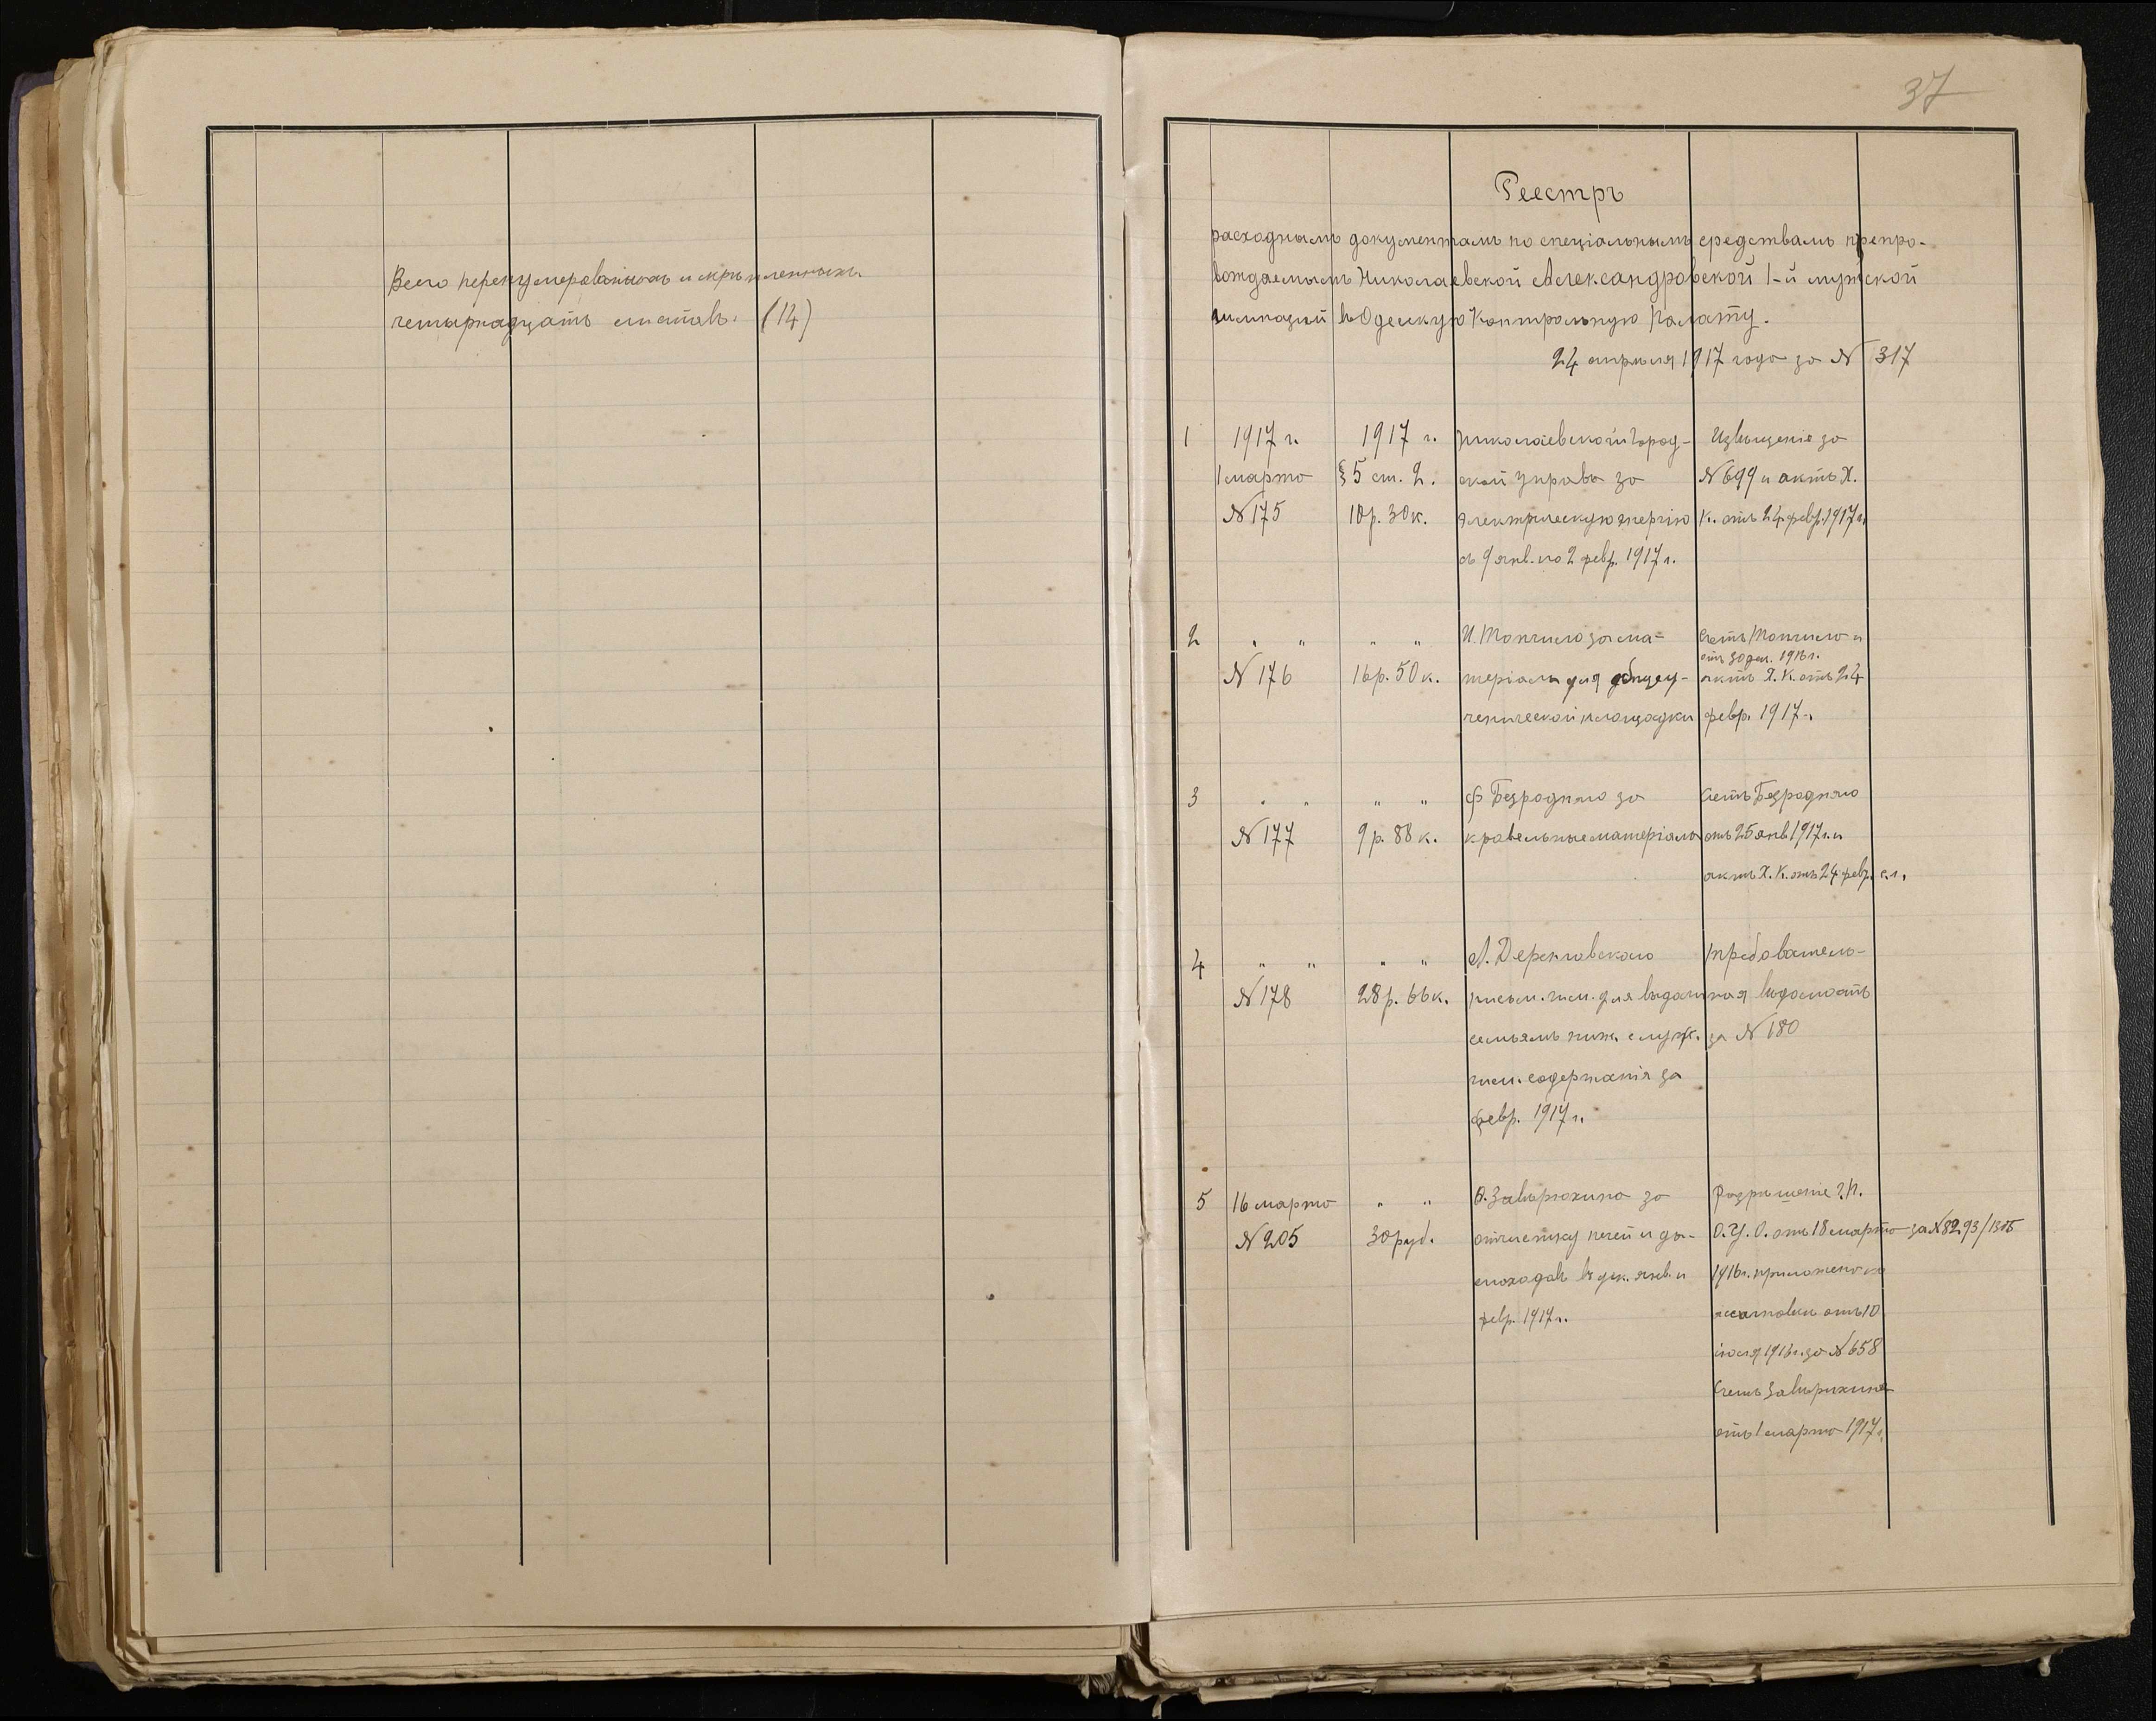 Всего перенумерованныхъ и скрѣпленныхъ
четырнадцать листовъ. (14)
37
Реестръ
расходнымъ документамъ по спеціальнымъ средствамъ препро-
вождаемымъ Николаевской Александровской 1-й мужской
гимназіей въ Одесскую Контрольную Палату.
24 апрѣля 1917 года за № 317
1 1917 г. 1917 г. Николаевской Город- Извѣщеніе за
1 марта § 5 ст. 2. ской управѣ за № 699 и актъ Х.
№ 175 10 р. 30 к. электрическую энергію К. отъ 24 февр. 1917 г.
съ 9 янв. по 2 февр. 1917 г.
2 " " " " И. за ма- Счетъ и
отъ 30 1916 г.
№ 176 16 р. 50 к. теріалы для актъ Х. К. отъ 24
площадки февр. 1917 г.
3 " " " " Ф Безродняго за Счетъ Безродняго
№ 177 9 р. 88 к. кровельные матеріалы отъ 25 янв 1917 г. и
актъ Х. К. отъ 24 февр. с. г.
4 " " " " Требователь-
№ 178 28 р. 66 к. письм. гим. для выдачи ная вѣдомость
семьямъ ниж. служ. за № 180
гим. содержанія за
февр. 1917 г.
5 16 марта " " за Разрѣшеніе г. П.
№ 205 30 руб. отчистку печей и ды- О. У. О. отъ 18 марта за № 8293/1305
моходовъ въ дек. янв. и 1916 г. приложено къ
февр. 1917 г. ассигновкѣ отъ 10
1916 г. за № 658
Счетъ
отъ 1 марта 1917 г.